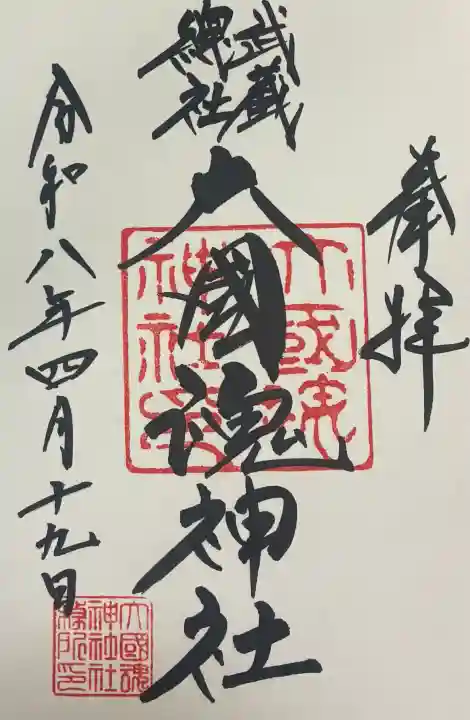 奉拝
武蔵
総社
大國魂神社
大國魂
神社印
令和八年四月十九日
大國魂
神社社
務所印